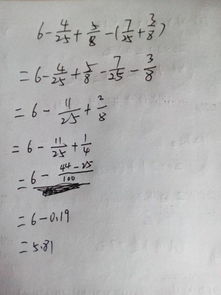 6 - 4/25 + 5/8 - (7/25 + 3/8)
= 6 - 4/25 + 5/8 - 7/25 - 3/8
= 6 - 11/25 + 2/8
= 6 - 11/25 + 1/4
= 6 - 44-25/100
= 6 - 0.19
= 5.81